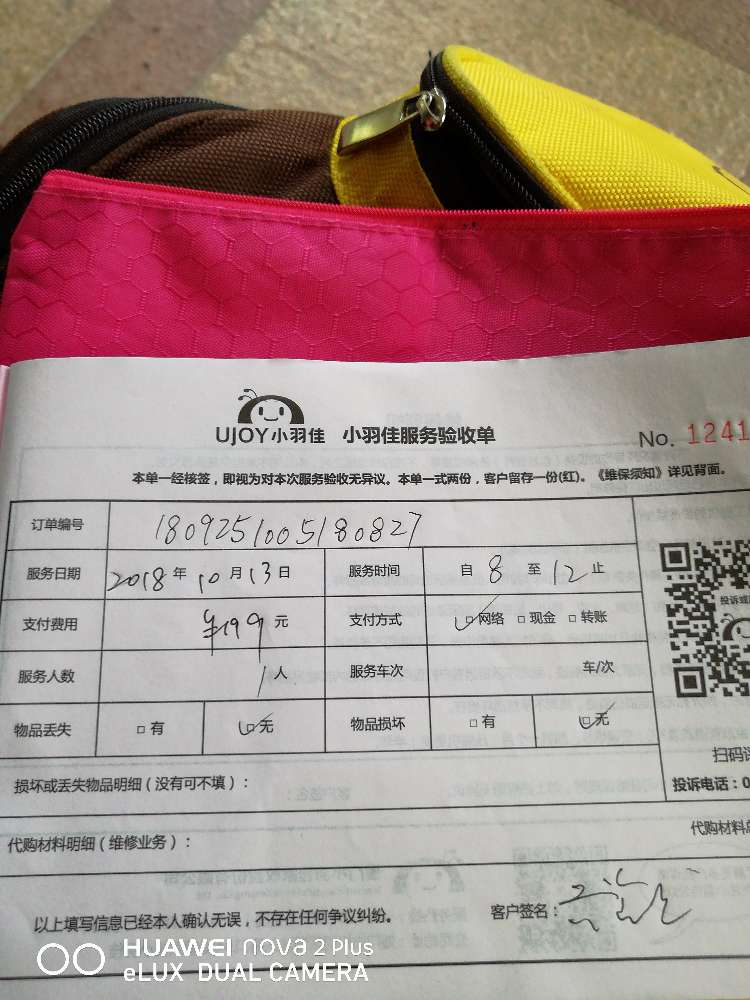 UJOY小羽佳 小羽佳服务验收单 No. 1241
本单一经核签，即视为对本次服务验收无异议。本单一式两份，客户留存一份(红)。《维保须知》详见背面。
订单编号 1809251005180827
服务日期 2018年10月13日 服务时间 自8至12止
支付费用 ¥199元 支付方式 ☑网络 □现金 □转账
服务人数 1人 服务车次 车/次
物品丢失 □有 ☑无 物品损坏 □有 ☑无
投诉或
扫码评
损坏或丢失物品明细（没有可不填）： 投诉电话：0
代购材料明细（维修业务）： 代购材料总
以上填写信息已经本人确认无误，不存在任何争议纠纷。 客户签名：
HUAWEI nova 2 Plus
eLUX DUAL CAMERA